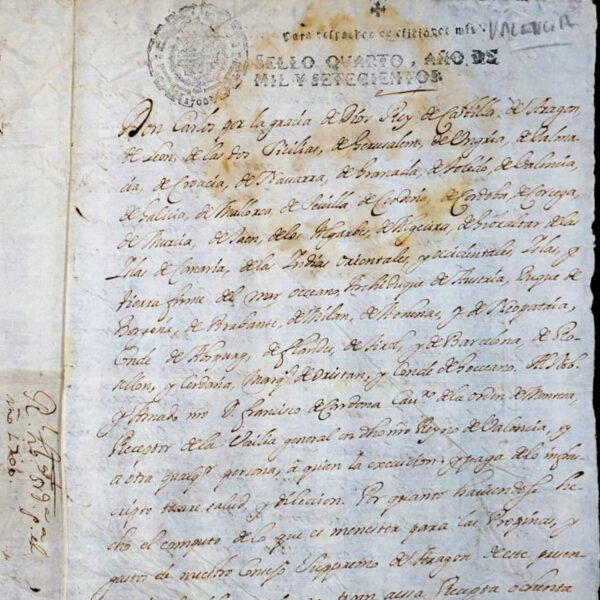 para despachos de oficio dos mrs.
VALENCIA
SELLO QVARTO, AÑO DE
MIL Y SETECIENTOS
1700
Don Carlos por la gracia de Dios Rey de Castilla, de Aragon,
de Leon, de las dos Sicilias, de Jerusalem, de Ungria, de Dalma
cia, de Croacia, de Navarra, de Granada, de Toledo, de Valencia
de Galicia, de Mallorca, de Sevilla, de Cerdeña, de Cordoba, de Corcega,
de Murcia, de Jaen, de los Algarbes, de Algecira, de Gibraltar, de las
Islas de Canaria, de las Indias Orientales, y occidentales, Islas, y
tierra firme del mar occeano, Archiduque de Austria, Duque de
Borgoña, de Brabante, de Milan, de Athenas, y de Neopatria,
Conde de Abspurg, de Flandes, de Tirol, y de Barcelona, de Ro-
sellon, y Cerdaña, Marqs. de Oristan, y Conde de Goceano. Al Nob.
y Amado nro D. Francisco de Cardona Cavro. de la orden de Montesa,
Receptor de la Bailia general en dho nro Reyno de Valencia, y
a otra qualqr. persona, a quien la execucion, y paga de lo infra-
scripto tocare salud, y dileccion. Por quanto haviendose he
cho el computo de lo que es menester para las Propinas, y
gastos de nuestro Consejo Supremo de Aragon de este presen
aessa Recepta ochenta
año 1700